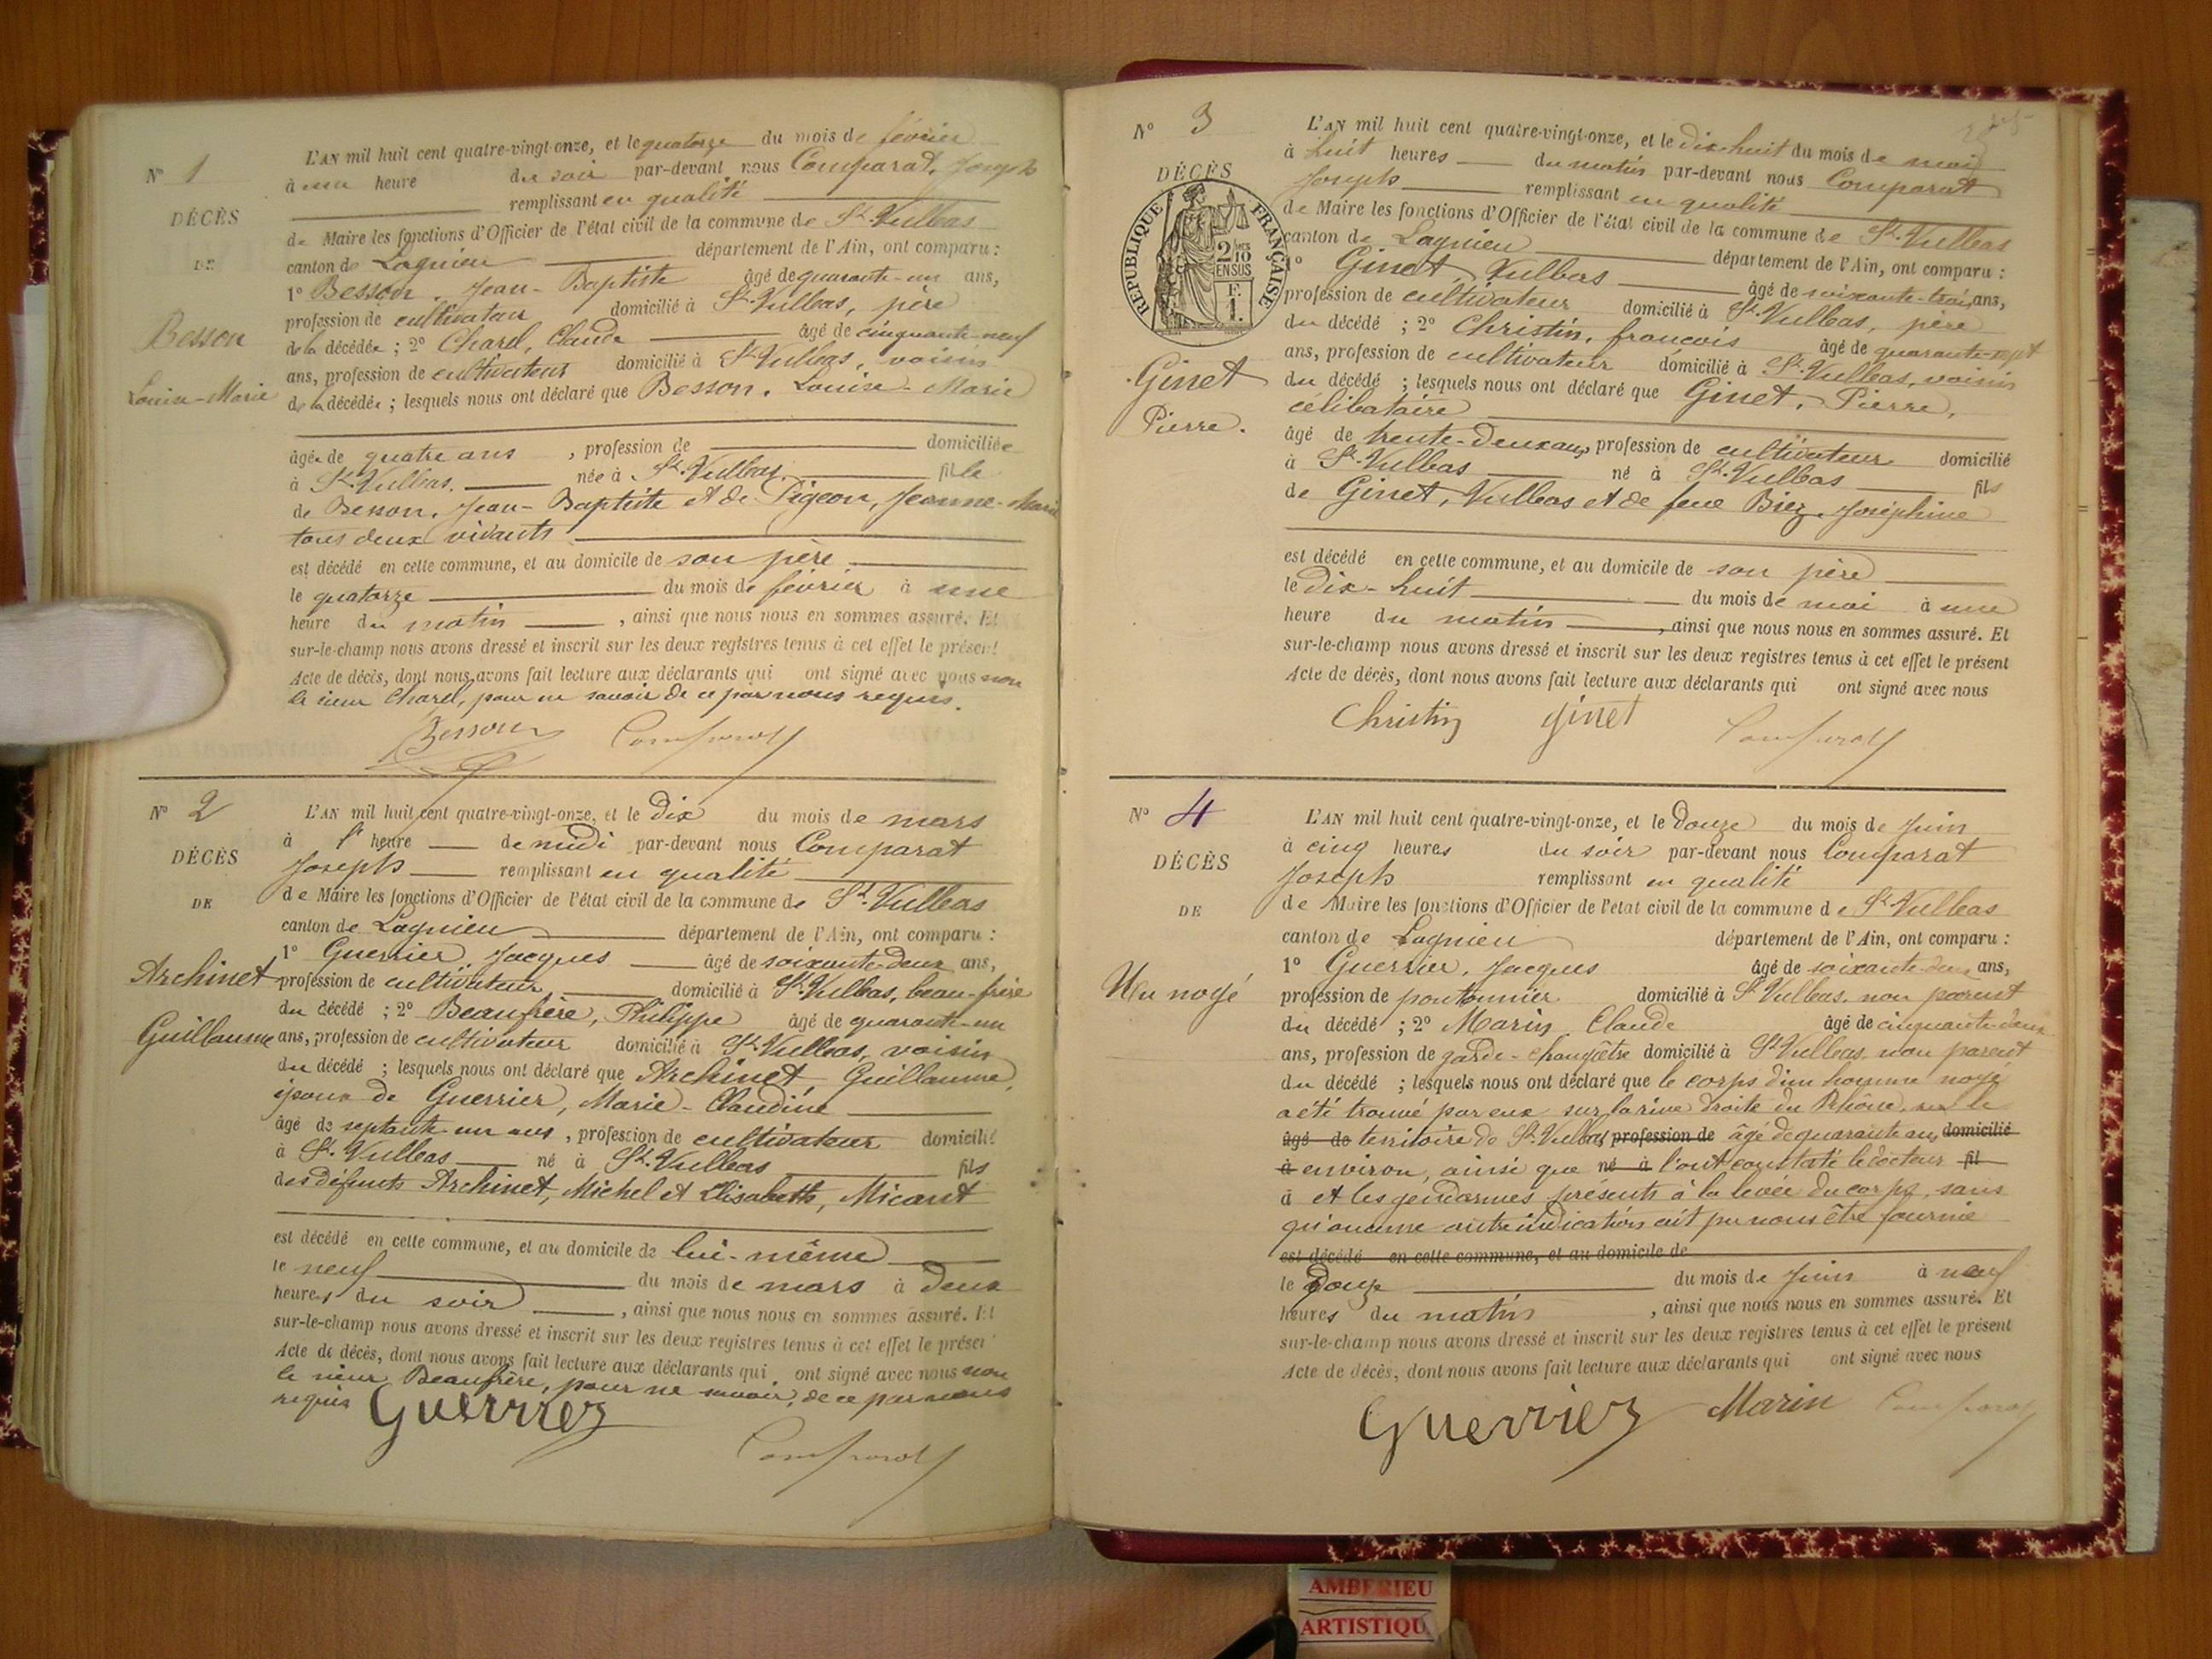 N° 1
DÉCÈS
DE
Besson
Louise-Marie
L'AN mil huit cent quatre-vingt-onze, et le quatorze du mois de février
à une heure du soir par-devant nous Comparat, Joseph
remplissant en qualité
de Maire les fonctions d'Officier de l'état civil de la commune de St. Vulbas
canton de Lagnieu département de l'Ain, ont comparu :
1° Besson, Jean-Baptiste âgé de quarante-un ans,
profession de cultivateur domicilié à St. Vulbas, père
de la décédée ; 2° Charel, Claude âgé de cinquante-neuf
ans, profession de cultivateur domicilié à St. Vulbas, voisin
de la décédée ; lesquels nous ont déclaré que Besson, Louise-Marie
âgée de quatre ans , profession de domiciliée
à St. Vulbas. née à St. Vulbas, fille
de Besson, Jean-Baptiste et de Pigeon, Jeanne-Marie
tous deux vivants
est décédé en cette commune, et au domicile de son père
le quatorze du mois de février à une
heure du matin , ainsi que nous nous en sommes assuré. Et
sur-le-champ nous avons dressé et inscrit sur les deux registres tenus à cet effet le présent
Acte de décès, dont nous avons fait lecture aux déclarants qui ont signé avec nous non
le sieur Charel, pour ne savoir de ce par nous requis.
Besson Comparat
N° 2
DÉCÈS
DE
Archinet
Guillaume
L'AN mil huit cent quatre-vingt-onze, et le dix du mois de mars
à heure de midi par-devant nous Comparat
Joseph remplissant en qualité
de Maire les fonctions d'Officier de l'état civil de la commune de St. Vulbas
canton de Lagnieu département de l'Ain, ont comparu :
1° Guerrier, Jacques âgé de soixante-deux ans,
profession de cultivateur domicilié à St. Vulbas, beau-frère
du décédé ; 2° Beaufrère, Philippe âgé de quarante-un
ans, profession de cultivateur domicilié à St. Vulbas, voisin
du décédé ; lesquels nous ont déclaré que Archinet, Guillaume,
époux de Guerrier, Marie-Claudine
âgé de septante-un ans , profession de cultivateur domicilié
à St. Vulbas né à St. Vulbas fils
des défunts Archinet, Michel et Elisabeth, Micant
est décédé en cette commune, et au domicile de lui-même
le neuf du mois de mars à deux
heures du soir , ainsi que nous nous en sommes assuré. Et
sur-le-champ nous avons dressé et inscrit sur les deux registres tenus à cet effet le présent
Acte de décès, dont nous avons fait lecture aux déclarants qui ont signé avec nous non
le sieur Beaufrère, pour ne savoir, de ce par nous
requis Guerrier
Comparat
N° 3
DÉCÈS
RÉPUBLIQUE FRANÇAISE
2/10 EN SUS
F. 1.
Ginet
Pierre.
L'AN mil huit cent quatre-vingt-onze, et le dix-huit du mois de mai
à huit heures du matin par-devant nous Comparat
Joseph remplissant en qualité
de Maire les fonctions d'Officier de l'état civil de la commune de St. Vulbas
canton de Lagnieu département de l'Ain, ont comparu :
1° Ginet, Vulbas âgé de soixante-trois ans,
profession de cultivateur domicilié à St. Vulbas, père
du décédé ; 2° Christin, francois âgé de quarante-sept
ans, profession de cultivateur domicilié à St. Vulbas, voisin
du décédé ; lesquels nous ont déclaré que Ginet, Pierre,
célibataire
âgé de trente-deux ans, profession de cultivateur domicilié
à St. Vulbas né à St. Vulbas fils
de Ginet, Vulbas et de feue Biez, Joséphine
est décédé en cette commune, et au domicile de son père
le dix-huit du mois de mai à une
heure du matin , ainsi que nous nous en sommes assuré. Et
sur-le-champ nous avons dressé et inscrit sur les deux registres tenus à cet effet le présent
Acte de décès, dont nous avons fait lecture aux déclarants qui ont signé avec nous
Christin ginet Comparat
N° 4
DÉCÈS
DE
Un noyé
L'AN mil huit cent quatre-vingt-onze, et le douze du mois de Juin
à cinq heures du soir par-devant nous Comparat
Joseph remplissant en qualité
de Maire les fonctions d'Officier de l'état civil de la commune de St. Vulbas
canton de Lagnieu département de l'Ain, ont comparu :
1° Guerrier, Jacques âgé de soixante-deux ans,
profession de pontonnier domicilié à St. Vulbas, non parent
du décédé ; 2° Marin, Claude âgé de cinquante-deux
ans, profession de garde-champêtre domicilié à St. Vulbas, non parent
du décédé ; lesquels nous ont déclaré que le corps d'un homme noyé
a été trouvé par eux sur la rive droite du Rhône, sur le
âgé de territoire de St. Vulbas profession de âgé de quarante ans domicilié
à environ, ainsi que né à l'ont constaté le docteur fil
à et les gendarmes présents à la levée du corps, sans
qu'aucune autre indication ait pu nous être fournie
est décédé en cette commune, et au domicile de
le Douze du mois de Juin à neuf
heures du matin , ainsi que nous nous en sommes assuré. Et
sur-le-champ nous avons dressé et inscrit sur les deux registres tenus à cet effet le présent
Acte de décès, dont nous avons fait lecture aux déclarants qui ont signé avec nous
Guerrier Marin Comparat
AMBERIEU
ARTISTIQU